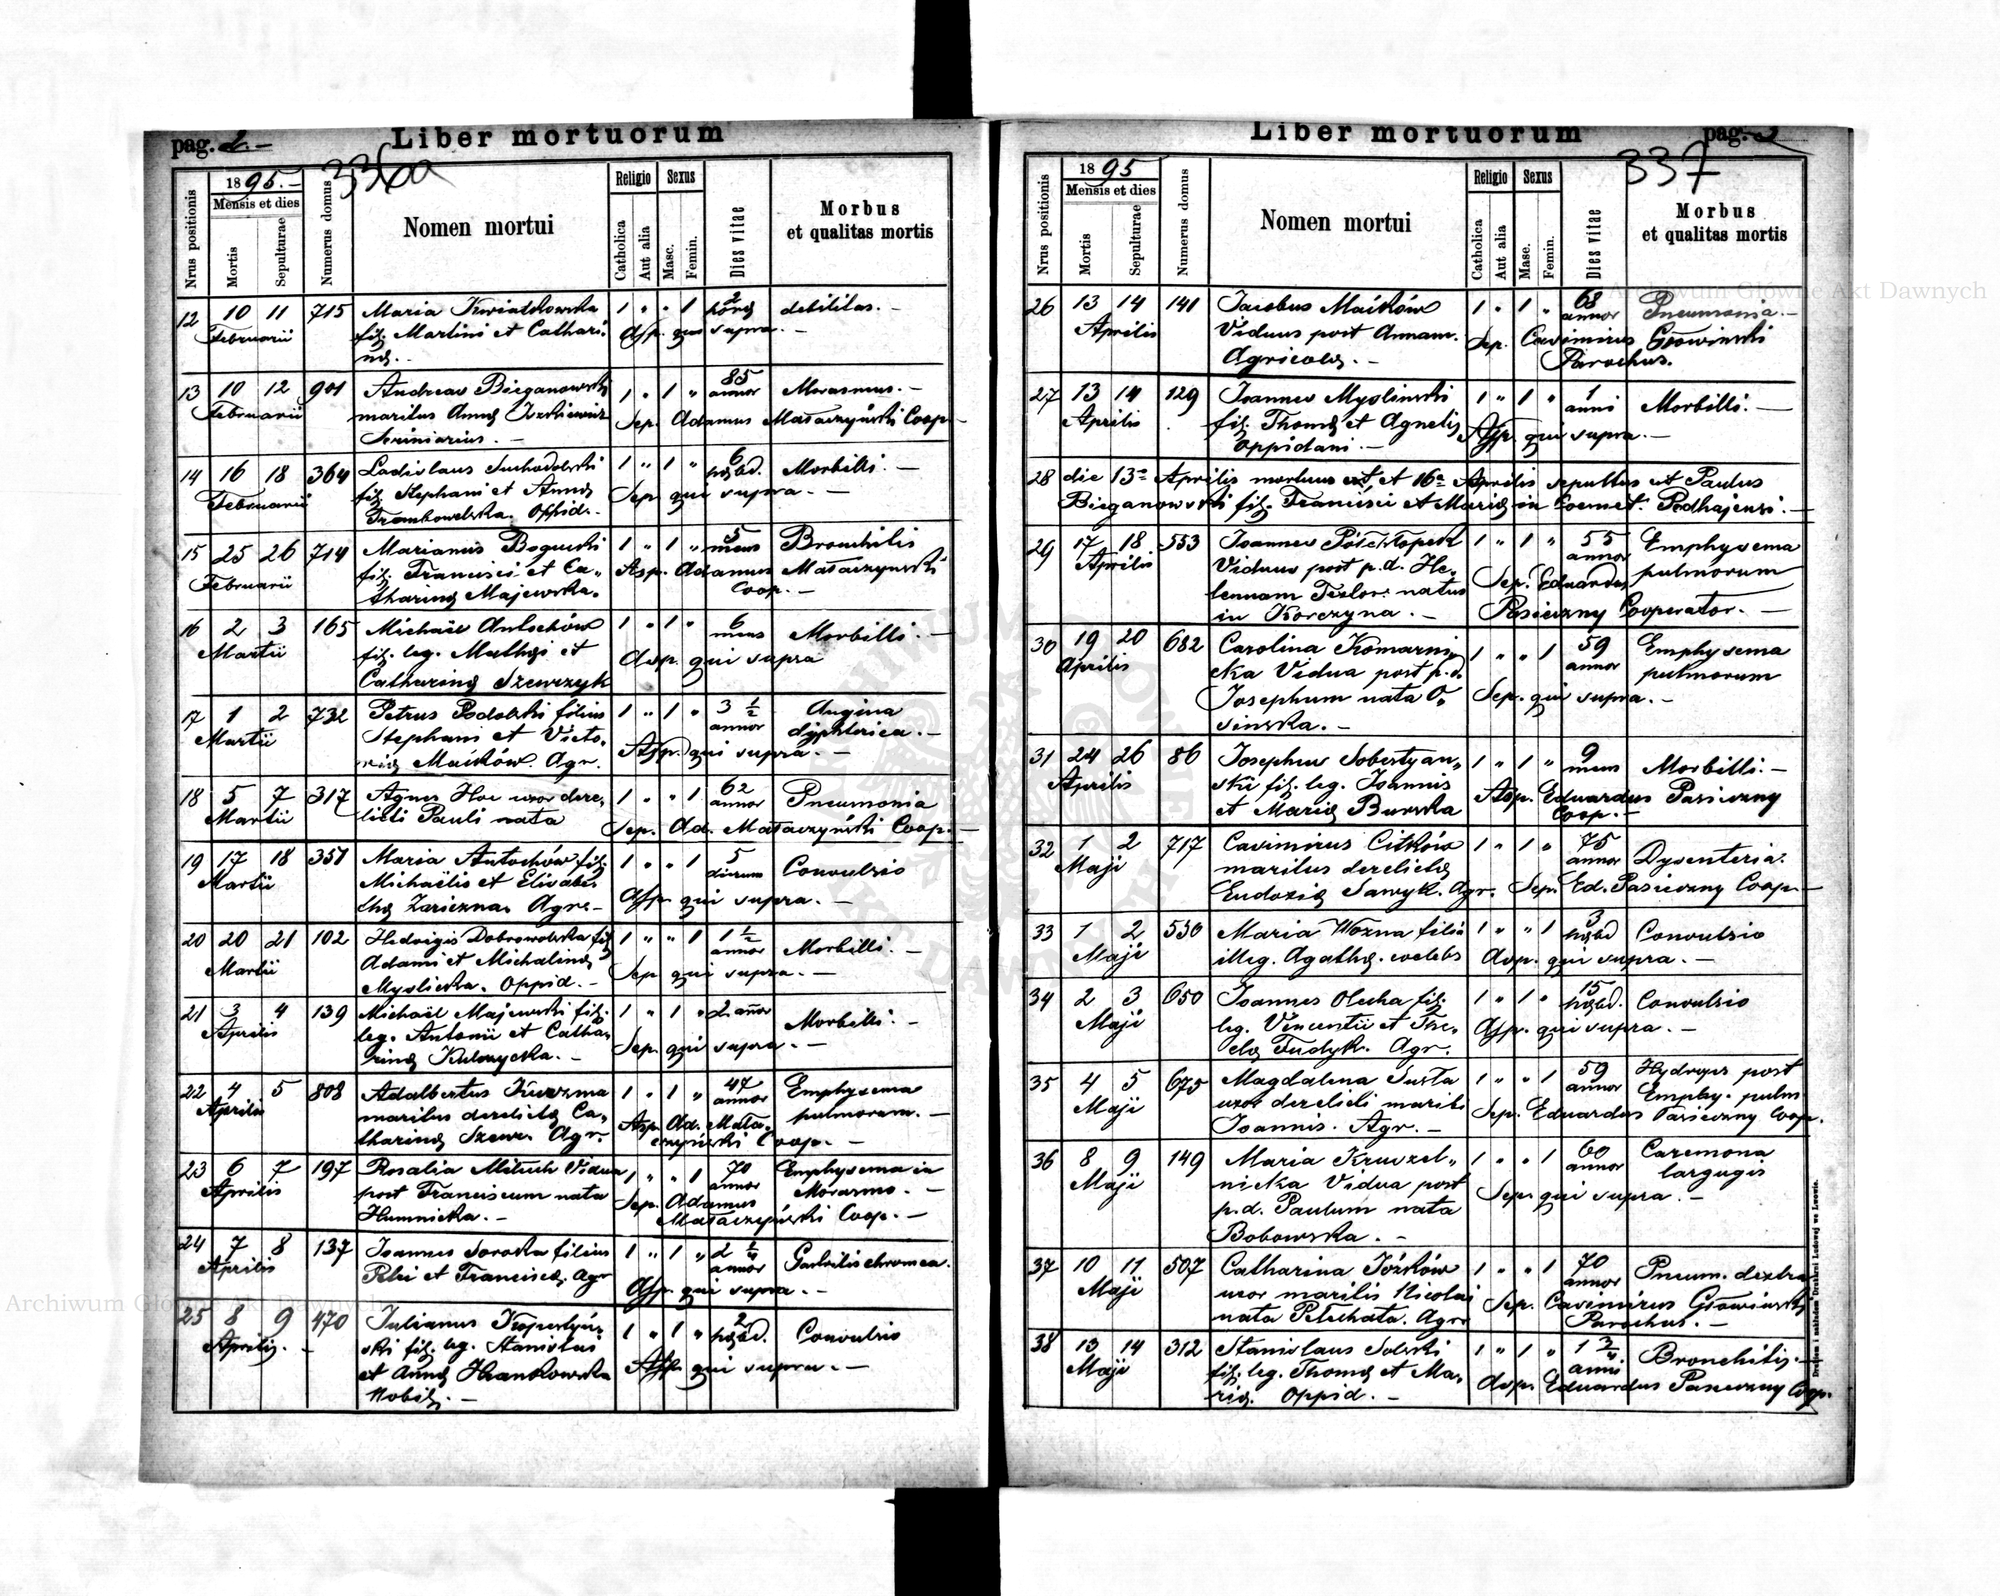 pag. 2. –
Liber mortuorum
336a
Nrus positionis
1895. –
Mensis et dies
Mortis
Sepulturae
Numerus domus
Nomen mortui
Religio
Catholica
Aut alia
Sexus
Masc.
Femin.
Dies vitae
Morbus
et qualitas mortis
12 10 11 715 Maria Kwiatkowska 1 " " 1 2 debilitas. –
Februarii fil. Martini et Cathari- Asp. qui supra –
næ. –
13 10 12 901 Andreas Bieganowski 1 " 1 " 85 annor Marasmus. –
Februarii maritus Annæ Sep. Adamus Mataczyński Coop –
–
14 16 18 364 Ladislaus Suchodolski 1 " 1 " 6 hebd. Morbilli. –
Februarii fil. Stephani et Annæ Sep. qui supra. –
Trembowelska. Oppid. –
15 25 26 714 Marianus Bogucki 1 " 1 " 5 mens Bronchitis
Februarii fil. Francisci et Ca- Asp. Adamus Mataczynski
tharinæ Majewska. Coop. –
16 2 3 165 Michaël Antochów 1 " 1 " 6 mens Morbilli. –
Martii fil. leg. Mathæi et Asp. qui supra
Catharinæ Szewczyk
17 1 2 732 Petrus Podolski filius 1 " 1 " 3 1/2 annor Angina
Martii Stephani et Victo- Asp. qui supra. – dyphterica. –
riæ Maików. Agr.
18 5 7 317 Agnes Hoc uxor dere- 1 " " 1 62 annor Pneumonia
Martii licti Pauli nata Sep. Ad. Mataczyński Coop. –
19 17 18 351 Maria Antochów fil. 1 " " 1 5 dierum Convulsio
Martii Michaëlis et Elisabe- Asp. qui supra. –
thæ Zariczna. Agr. –
20 20 21 102 Hedvigis Dobrowolska fil. 1 " " 1 1 1/2 annor Morbilli. –
Martii Adami et Michalinæ Sep qui supra. –
Myslicka. Oppid. –
21 3 4 139 Michaël Majewski fil. 1 " 1 " 2 añor Morbilli. –
Aprilis leg. Antonii et Catha- Sep. qui supra. –
rinæ Kulczycka. –
22 4 5 808 Adalbertus Kuczma 1 " 1 " 47 annor Emphysema
Aprilis maritus derelictæ Ca- Asp. Ad. Mata- pulmorum. –
tharinæ Szewc. Agr. czyński Coop. –
23 6 7 197 Rosalia Vidua 1 " " 1 70 annor Emphysema in
Aprilis post Franciscum nata Sep. Adamus Marasmo. –
Humnicka. – Mataczyński Coop. –
24 7 8 137 Joannes Soroka filius 1 " 1 " 2 1/4 annor Gastritis chronica.
Aprilis Petri et Franciscæ. Agr Asp. qui supra. –
25 8 9 470 Julianus 1 " 1 " 2 hebd. Convulsio
Aprilis. – ski fil. leg. Stanislai Asp. qui supra. –
et Annæ Hrankowska
Nobil. –
Liber mortuorum
pag. 2
337
Nrus positionis
1895
Mensis et dies
Mortis
Sepulturae
Numerus domus
Nomen mortui
Religio
Catholica
Aut alia
Sexus
Masc.
Femin.
Dies vitae
Morbus
et qualitas mortis
26 13 14 141 Jacobus Maików 1 " 1 " 68 annor Pneumonia. –
Aprilis Viduus post Annam. Sep. Casimirus Głowinski
Agricola. – Parochus.
27 13 14 129 Joannes Myslinski 1 " 1 " 1 anni Morbilli. –
Aprilis fil. Thomæ et Agnetis Asp. qui supra. –
Oppidani. –
28 die 13ª Aprilis mortuus est, et 16ª Aprilis sepultus est Paulus
Bieganowski fil. Francisci et Mariæ in Coemet. Podhajensi. –
29 17 18 553 Joannes Półchłopek 1 " 1 " 55 annor Emphysema
Aprilis Viduus post p.d. He- Sep. Eduardus pulmorum
lennam natus Pasieczny Cooperator. –
in Korczyna. –
30 19 20 682 Carolina Komarni- 1 " " 1 59 annor Emphysema
Aprilis cka Vidua post p.d. Sep. qui supra. – pulmorum
Josephum nata O-
sinska. –
31 24 26 86 Josephus Sobestyan- 1 " 1 " 9 mens Morbilli. –
Aprilis ski fil. leg. Joannis Asp. Eduardus Pasieczny
et Mariæ Burska Coop. –
32 1 2 717 Casimirus Citków 1 " 1 " 75 annor Dysenteria.
Maji maritus derelictæ
Eudoxiæ Sawyk. Agr. Sep. Ed. Pasieczny Coop. –
33 1 2 530 Maria Wozna filia 1 " " 1 3 hebd Convulsio
Maji illeg. Agathæ. coelebs Asp. qui supra. –
34 2 3 650 Joannes Olecha fil. 1 " 1 " 15 hebd. Convulsio
Maji leg. Vincentii et The- Asp. qui supra. –
clæ Fudyk. Agr.
35 4 5 675 Magdalena Susta 1 " " 1 59 annor Hydrops post
Maji uxor derelicti mariti Sep. Eduardus Pasieczny Coop. Emphy. pulm
Joannis. Agr. –
36 8 9 149 Maria Kruszel- 1 " " 1 60 annor Caremona
Maji nicka Vidua post Sep. qui supra. – largugis
p.d. Paulum nata
Bobowska. –
37 10 11 507 Catharina Józków 1 " " 1 70 annor Pneum. dextra
Maji uxor maritis Nicolai Sep. Casimirus Głowinski
nata Pełechata. Agr Parochus. –
38 13 14 312 Stanislaus Solski 1 " 1 " 1 3/4 anni Bronchitis. –
Maji fil. leg. Thomæ et Ma- Asp. Eduardus Pasieczny Coop.
riæ. Oppid. –
Drukiem i nakładem Drukarni Ludowej we Lwowie.
Archiwum Główne Akt Dawnych
Archiwum Główne Akt Dawnych
ARCHIWUM GŁÓWNE AKT DAWNYCH